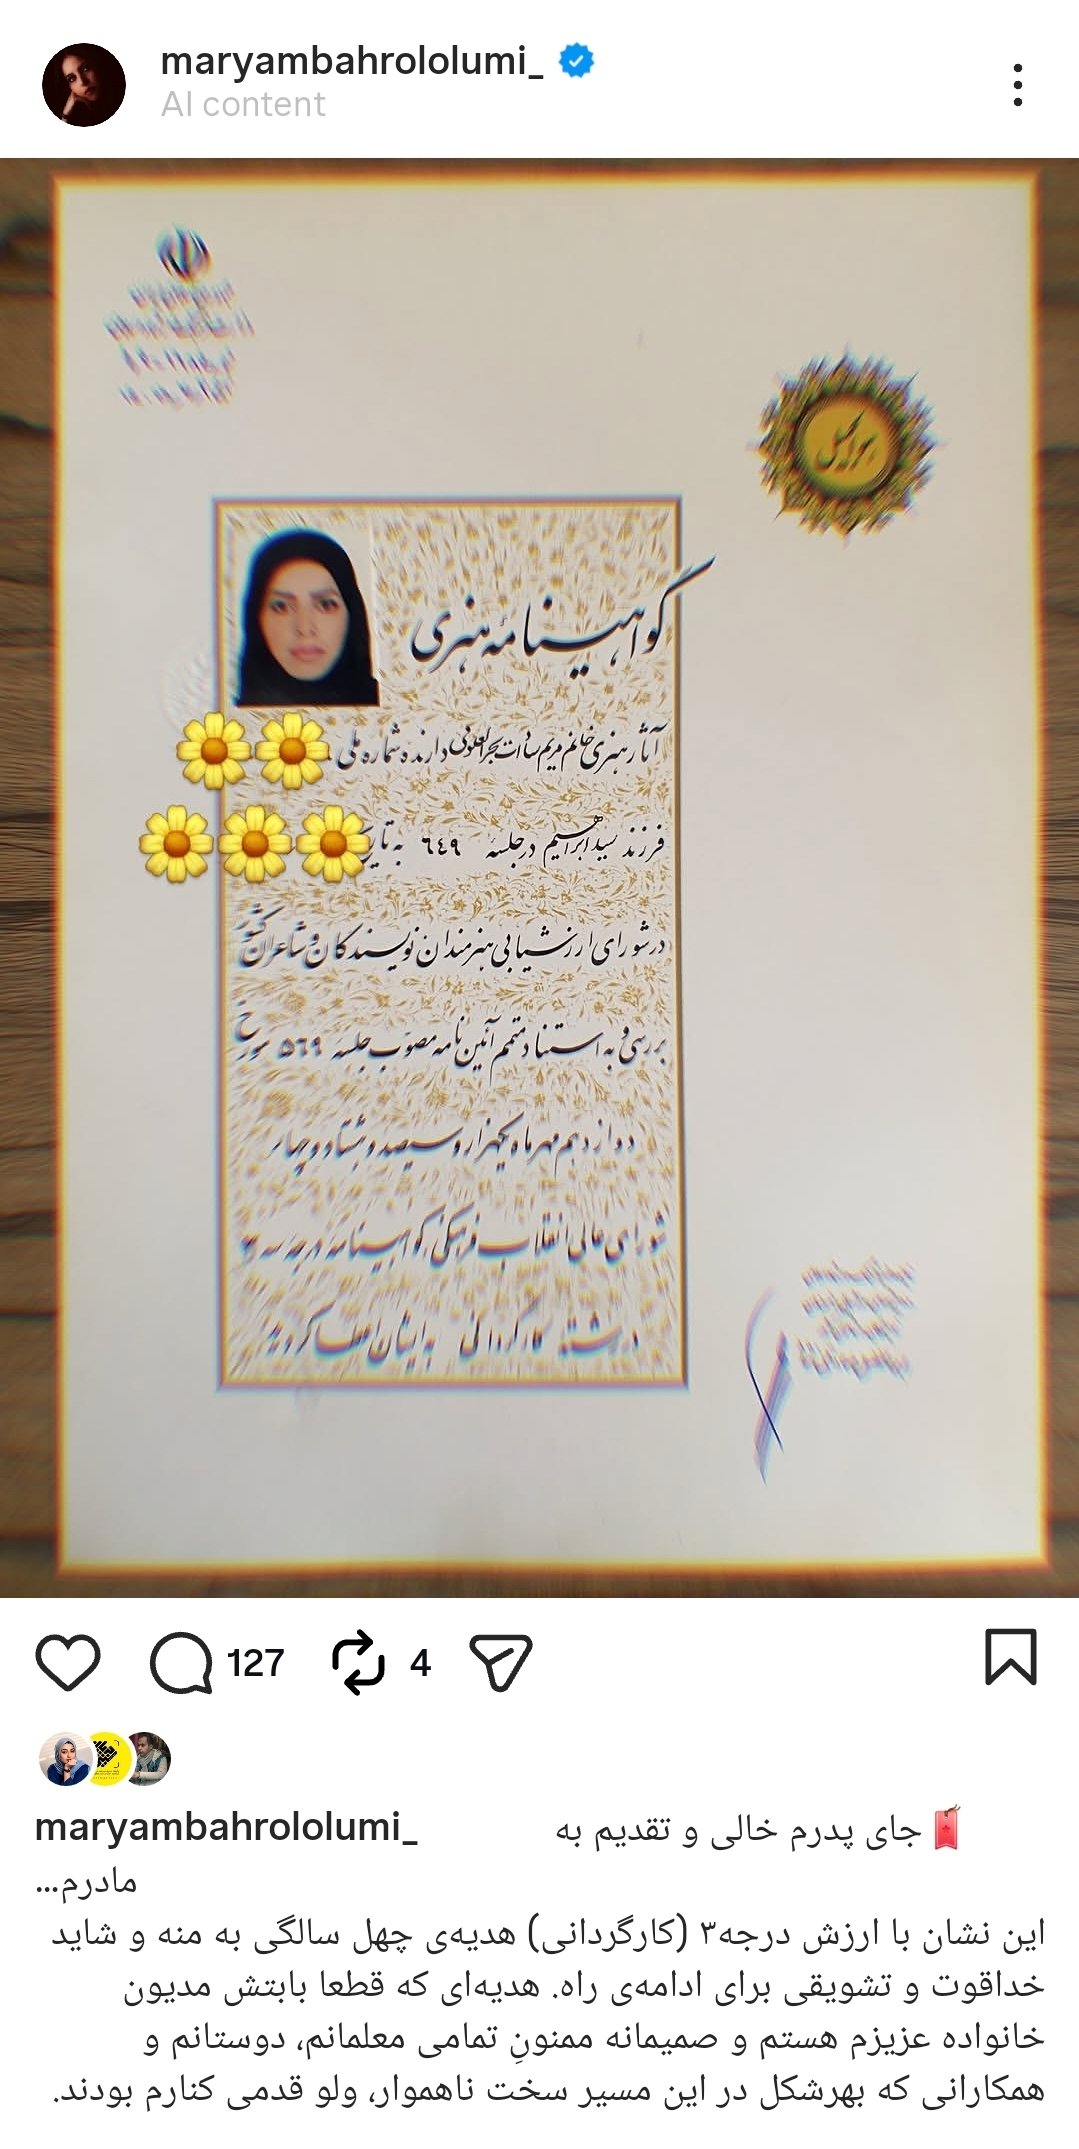 maryambahrololumi_
AI content
هوالجمیل
گواهینامه هنری
آثار هنری خانم مریم سادات بحرالعلومی دارنده شماره ملی
فرزند سید ابراهیم در جلسه ٦٤٩ به تاریخ
در شورای ارزشیابی هنرمندان نویسندگان و شاعران کشور
بررسی و به استناد متمم آئین نامه مصوب جلسه ٥٦٩ مورخ
دوازدهم مهرماه یکهزار و سیصد و هشتاد و چهار
شورای عالی انقلاب فرهنگی گواهینامه درجه سه
در رشته کارگردانی به ایشان اعطا گردید
127
4
maryambahrololumi_ جای پدرم خالی و تقدیم به
مادرم...
این نشان با ارزش درجه۳ (کارگردانی) هدیه‌ی چهل سالگی به منه و شاید
خداقوت و تشویقی برای ادامه‌ی راه. هدیه‌ای که قطعا بابتش مدیون
خانواده عزیزم هستم و صمیمانه ممنونِ تمامی معلمانم، دوستانم و
همکارانی که بهرشکل در این مسیر سخت ناهموار، ولو قدمی کنارم بودند.